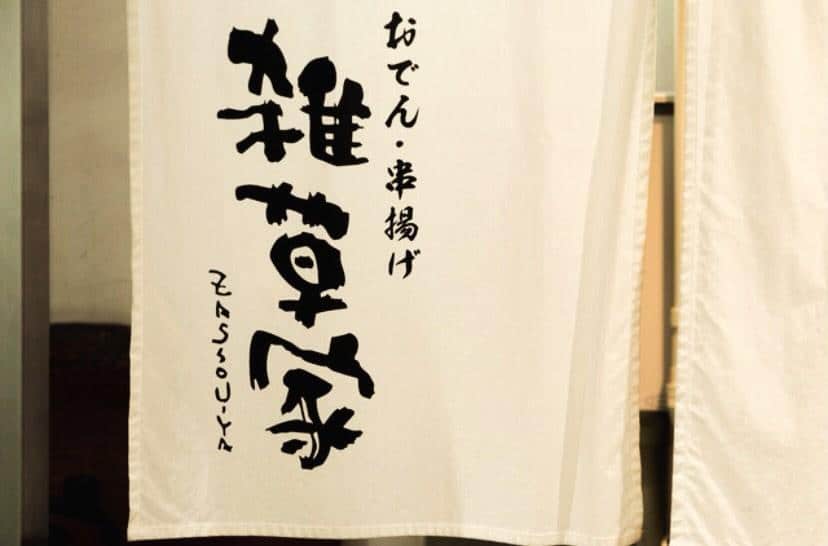 おでん・串揚げ
雑草家
ZASSOU-YA